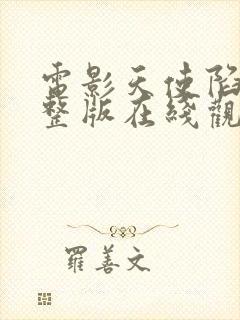 電影天使陷
整版在綫觀
羅善文